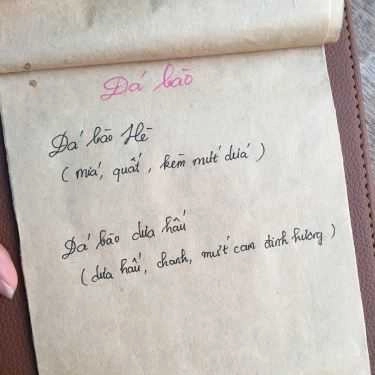 Đá bào
Đá bào Hè
(mía, quất, kèm mứt dừa)
Đá bào dưa hấu
(dưa hấu, chanh, mứt cam đinh hương)